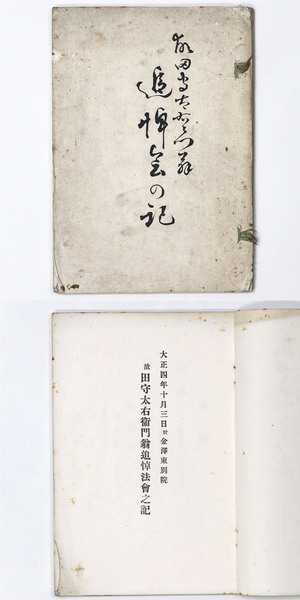 故田守太右衛門翁
追悼会の記
大正四年十月三日於金澤東別院
故田守太右衞門翁追悼法會之記